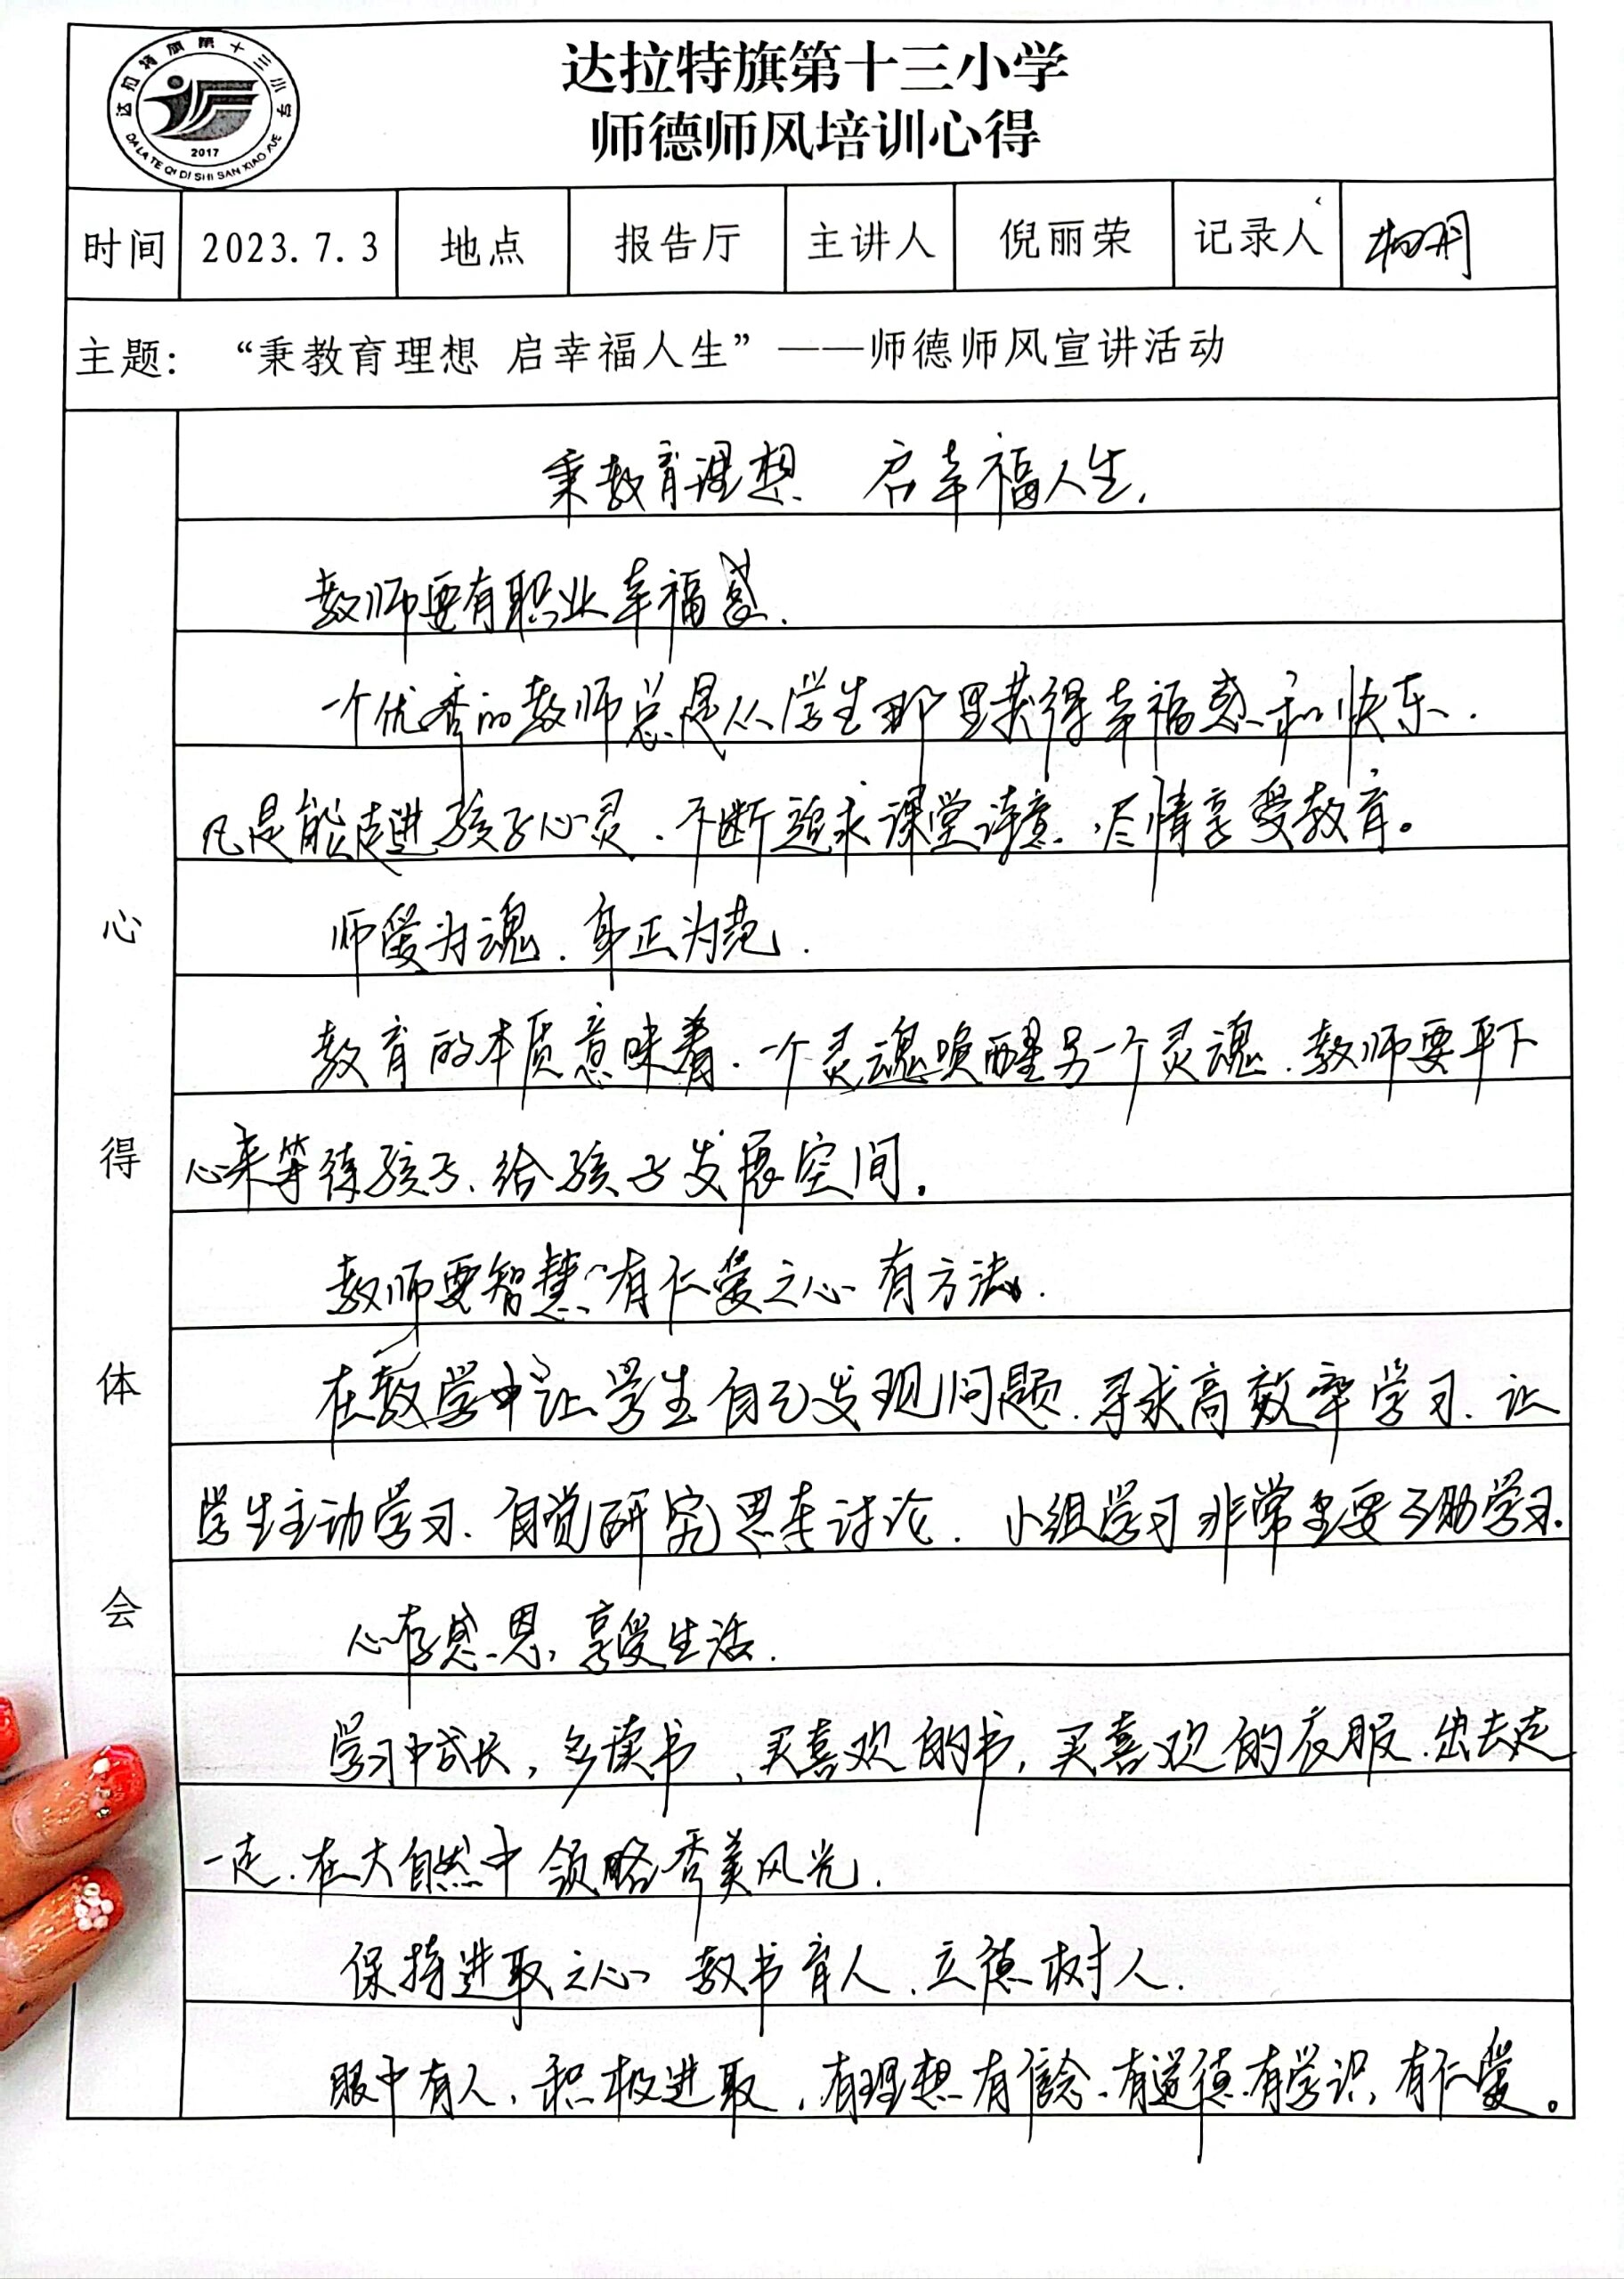 达拉特旗第十三小学
DA LA TE QI DI SHI SAN XIAO XUE
2017
达拉特旗第十三小学
师德师风培训心得
时间 2023.7.3 地点 报告厅 主讲人 倪丽荣 记录人
主题：“秉教育理想 启幸福人生”——师德师风宣讲活动
心得体会
秉教育理想 启幸福人生.
教师要有职业幸福感.
一个优秀的教师总是从学生那里获得幸福感和快乐.
凡是能走进孩子心灵.不断追求课堂诗意.尽情享受教育。
师爱为魂.身正为范.
教育的本质意味着.一个灵魂唤醒另一个灵魂.教师要平下
心来等待孩子、给孩子发展空间。
教师要智慧 有仁爱之心 有方法.
在教学中让学生自己发现问题.寻求高效率学习、让
学生主动学习、自觉研究思考讨论. 小组学习非常重要互助学习.
心存感恩,享受生活.
学习中成长,多读书、买喜欢的书,买喜欢的衣服.出去走
一走.在大自然中领略秀美风光.
保持进取之心 教书育人.立德树人.
眼中有人,积极进取.有理想有信念.有道德.有学识,有仁爱。